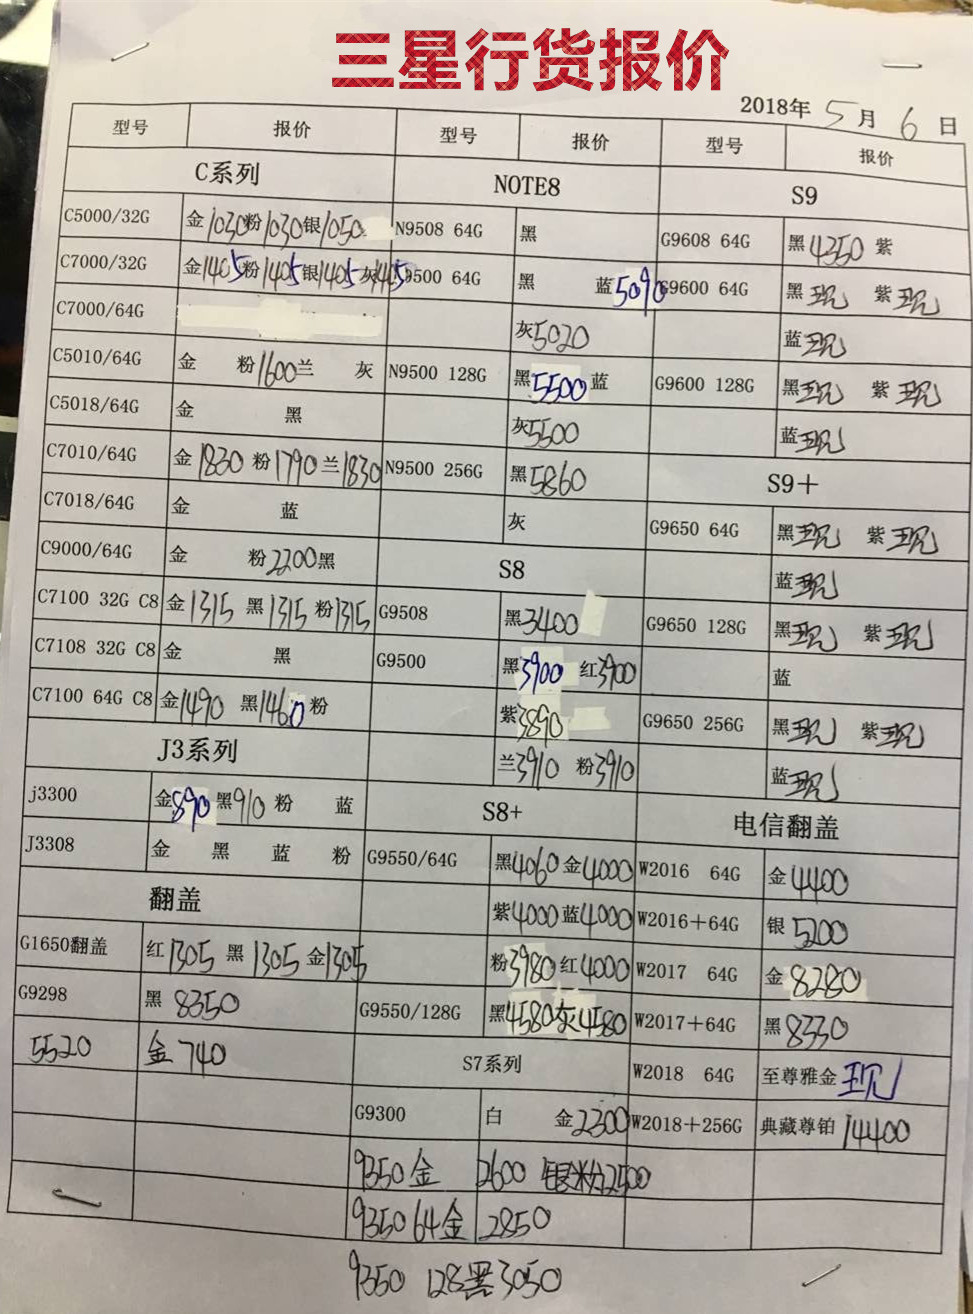 三星行货报价
2018年 5 月 6 日
型号 报价 型号 报价 型号 报价
C系列 NOTE8 S9
C5000/32G 金1030粉1030银1050 N9508 64G 黑 G9608 64G 黑4350 紫
C7000/32G 金1405粉1405银1405灰1445 9500 64G 黑 蓝5090 G9600 64G 黑现 紫现
C7000/64G 灰5020 蓝现
C5010/64G 金 粉1600兰 灰 N9500 128G 黑5500蓝 G9600 128G 黑现 紫现
C5018/64G 金 黑 灰5500 蓝现
C7010/64G 金1830粉1790兰1830 N9500 256G 黑5860 S9+
C7018/64G 金 蓝 灰 G9650 64G 黑现 紫现
C9000/64G 金 粉2200黑 S8 蓝现
C7100 32G C8 金1315 黑1315 粉1315 G9508 黑3400 G9650 128G 黑现 紫现
C7108 32G C8 金 黑 G9500 黑3900 红3900 蓝
C7100 64G C8 金1490 黑1460粉 紫3890 G9650 256G 黑现 紫现
J3系列 兰3910 粉3910 蓝现
j3300 金890黑910粉 蓝 S8+ 电信翻盖
J3308 金 黑 蓝 粉 G9550/64G 黑4060金4000 W2016 64G 金4400
翻盖 紫4000蓝4000 W2016+64G 银5200
G1650翻盖 红1305 黑1305 金1305 粉3980红4000 W2017 64G 金8280
G9298 黑 8350 G9550/128G 黑4580灰4580 W2017+64G 黑8330
5520 金740 S7系列 W2018 64G 至尊雅金现
G9300 白 金2300 W2018+256G 典藏尊铂14400
9350金 2600 银粉2500
9350 64金 2850
9350 128黑3050